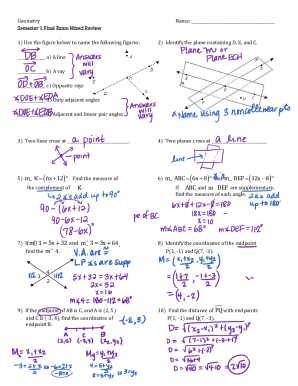 Geometry
Name:
Semester I Final Exam Mixed Review
1) Use the figure below to name the following figures:
DB a) A line
OC b) A ray
OD + OB c) Opposite rays
Only adjacent angles
Adjacent and linear pair angles
Answers will vary
Answers may vary
2) Identify the plane containing D, E, and C.
Plane M or
Plane ECH
*Name using 3 noncollinear pts
3) Two lines cross at a point.
point
4) Two planes cross at a line.
line
5) m∠K = (6x + 12)°. Find the measure of
the complement of K.
2 ∠'s add up to 90°
90 - (6x+12)
90-6x-12
(78-6x)°
6) m∠ABC = (6x + 8)° m∠DEF = (12x - 8)°
if ABC and DEF are supplementary,
find the measure of each angle.
2 ∠'s add up to 180°
6x+8+12x-8=180
18x=180
x=10
m∠ABC = 68° m∠DEF = 112°
7) If m∠1 = 5x + 32 and m∠3 = 3x + 64,
find the m∠4.
V.A. are ≅
LP ∠'s are Supp
5x+32 = 3x+64
2x = 32
x = 16
m∠4 = 180-112 = 68°
8) Identify the coordinates of the midpoint
P(1, -1) and Q(7, -3).
M = (x₁+x₂/2, y₁+y₂/2)
(1+7/2, -1+-3/2)
(4, -2)
9) If the midpoint of AB is C, and A is (2, 5)
and C B (-3, 4), find the coordinates of
endpoint B.
(-8, 3)
A C B
(2,5) (-3,4) (x₂,y₂)
10) Find the distance of PQ with endpoints
P(1, -1) and Q(7, -3).
D = √(x₂-x₁)² + (y₂-y₁)²
D = √(7-1)² + (-3+1)²
D = √6² + (-2)²
D = √36+4
D = √40 = √4·√10 = 2√10